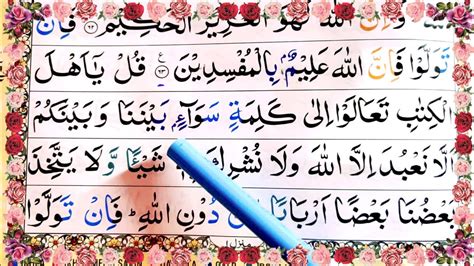 وَاِنَّ اللهَ لَهُوَ الْعَزِيْزُ الْحَكِيْمُ ﴿۶۲﴾ فَاِنْ
تَوَلَّوْا فَاِنَّ اللهَ عَلِيْمٌۢ بِالْمُفْسِدِيْنَ ﴿۶۳﴾ ع قُلْ يٰۤاَهْلَ
الْكِتٰبِ تَعَالَوْا اِلٰى كَلِمَةٍ سَوَآءٍۭ بَيْنَنَا وَ بَيْنَكُمْ
اَلَّا نَعْبُدَ اِلَّا اللهَ وَلَا نُشْرِكَ شَيْـًٔا وَّلَا يَتَّخِذَ
بَعْضُنَا بَعْضًا اَرْبَابًا دُوْنِ اللهِ ؕ فَاِنْ تَوَلَّوْا